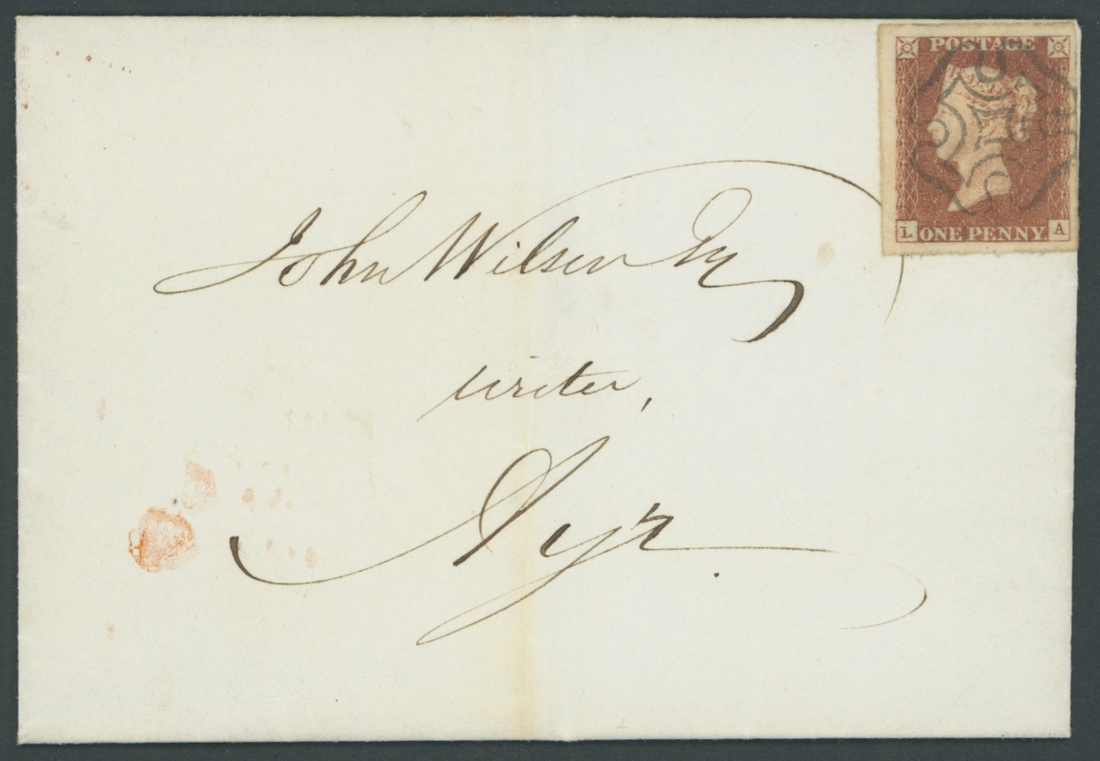 POSTAGE
L ONE PENNY A
John Wilson Esq
writer,
Ayr.